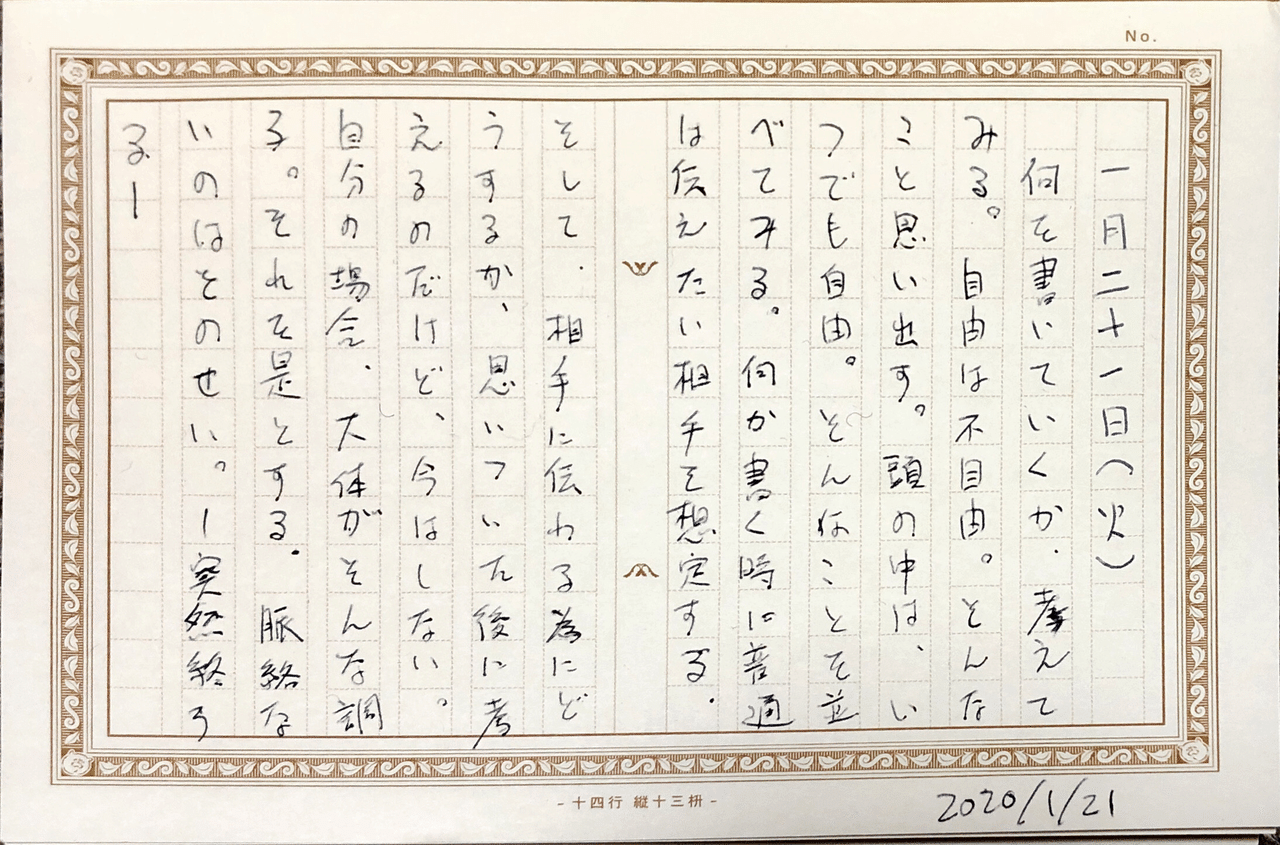 No.
一月二十一日(火)
何を書いていくか.考えて
みる。自由は不自由。どんな
こと思い出す。頭の中は、い
つでも自由。どんなことを並
べてみる。何か書く時に普通
は伝えたい相手を想定する.
そして.相手に伝わる為にど
うするか、思いついた後に考
えるのだけど、今はしない。
自分の場合、大体がそんな調
子。それを是とする.脈絡な
いのはとのせい。ー突然終わ
るー
-十四行 縦十三枡-
2020/1/21